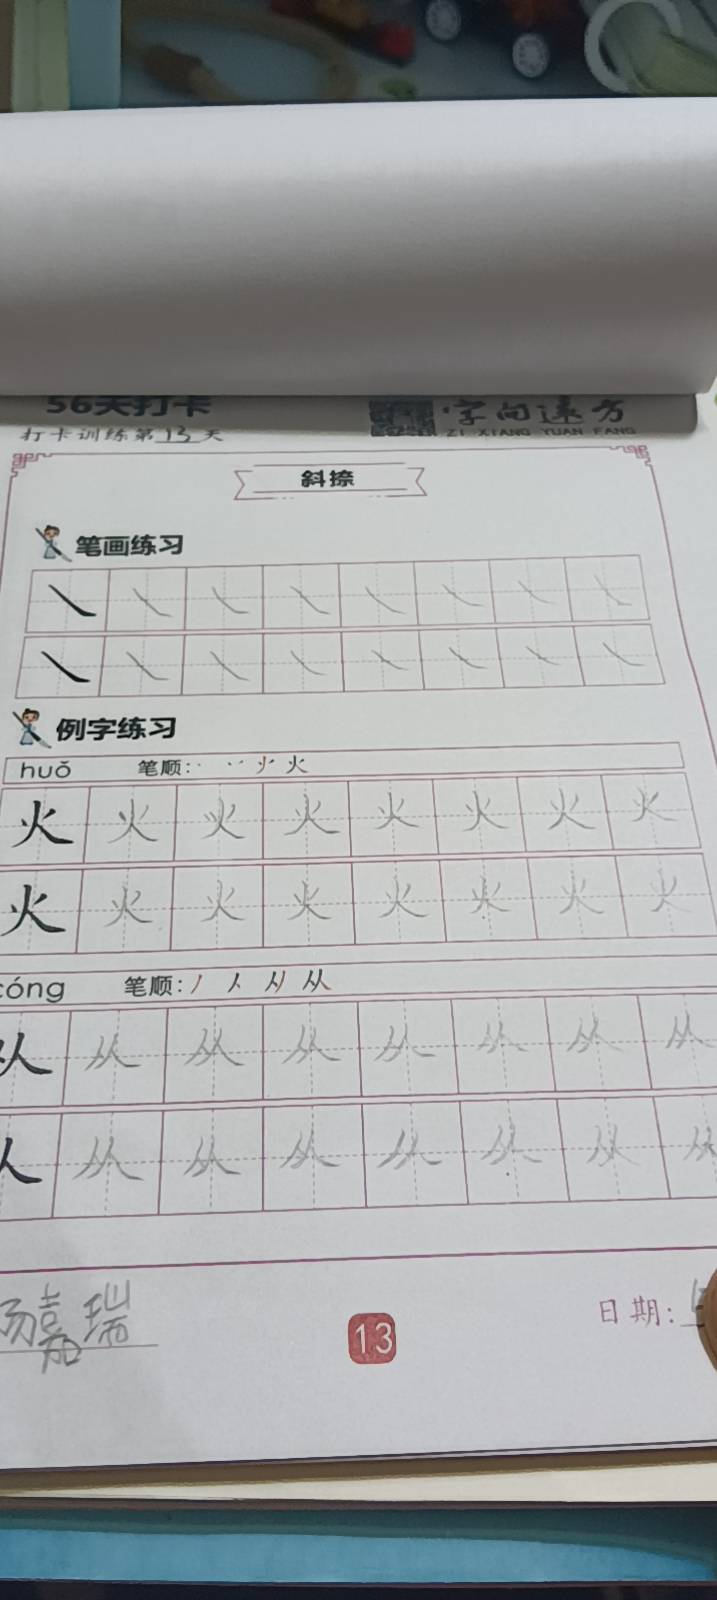 56天打卡
字向远方
打卡训练第13天
ZI XIANG YUAN FANG
斜捺
笔画练习
例字练习
huǒ 笔顺: 丶 丷 火 火
火 火 火 火 火 火 火 火
火 火 火 火 火 火 火 火
cóng 笔顺: 丿 人 从 从
从 从 从 从 从 从 从 从
从 从 从 从 从 从 从 从
嘉瑞
13
日期: